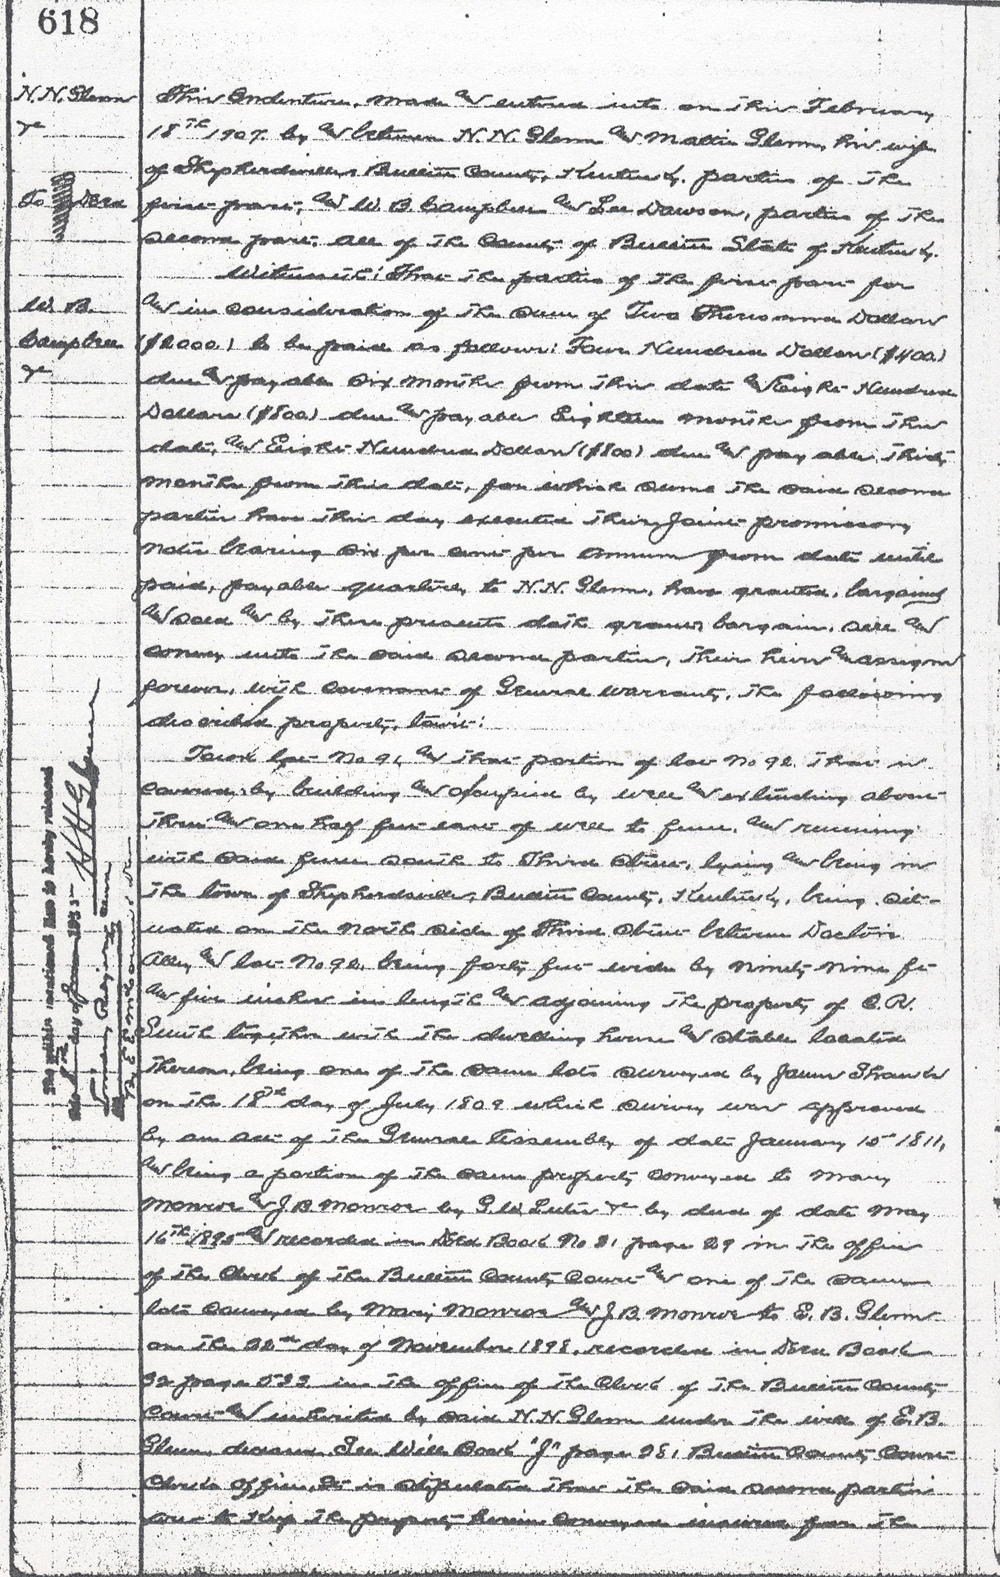 618
N.N. Glenn
&c
to Deed
W. B.
Campbell
&c
This Indenture, made & entered into on this February
18th 1907. by & between N. N. Glenn & Mattie Glenn, his wife
of Shepherdsville, Bullitt County, Kentucky. parties of the
first part, & W. B. Campbell & Lee Dawson, parties of the
second part, all of the County of Bullitt State of Kentucky.
Witnesseth: That the parties of the first part for
& in consideration of the sum of Two Thousand Dollars
($2000.) to be paid as follows: Four Hundred Dollars ($400.)
due & payable Six months from this date & Eight Hundred
Dollars ($800) due & payable Eighteen months from this
date, & Eight Hundred Dollars ($800) due & payable Thirty
months from this date, for which sums the said second
parties have this day executed their joint promissory
notes bearing six per cent per annum from date until
paid, payable quarterly to N. N. Glenn, have granted, bargained
& sold & by these presents doth grant, bargain, sell &
convey unto the said second parties, their heirs & assigns
forever, with covenant of General Warranty, the following
described property, towit:
Town lot No 91 & that portion of lot No 92 that is
covered by building & occupied by well & extending about
three & one half feet east of well to fence, & running
with said fence south to Third Street, lying & being in
the town of Shepherdsville, Bullitt County, Kentucky, being sit-
uated on the North side of Third Street between Doctors
Alley & lot No 92. being forty feet wide by ninety nine ft
& five inches in length & adjoining the property of C. R.
Smith together with the dwelling house & stable located
thereon, being one of the same lots surveyed by James Shanks
on the 18th day of July 1809 which survey was approved
by an act of the General Assembly of date January 10 1811,
& being a portion of the same property conveyed to Mary
Monroe & J B Monroe by G. W. &c by deed of date May
16th 1895 & recorded in Deed Book No 21 page 29 in the office
of the Clerk of the Bullitt County Court & one of the same
lots conveyed by Mary Monroe & J. B. Monroe to E. B. Glenn
on the 22nd day of November 1898. recorded in Deed Book
page 533 in the office of the Clerk of the Bullitt County
Court & inherited by said N. N. Glenn under the will of E. B.
Glenn, deceased. See Will Book "J" page 281 Bullitt County Court
Clerks office. It is stipulated that the said second parties
are to keep the property herein conveyed insured for the
The within mentioned lien is hereby released
this day of 19